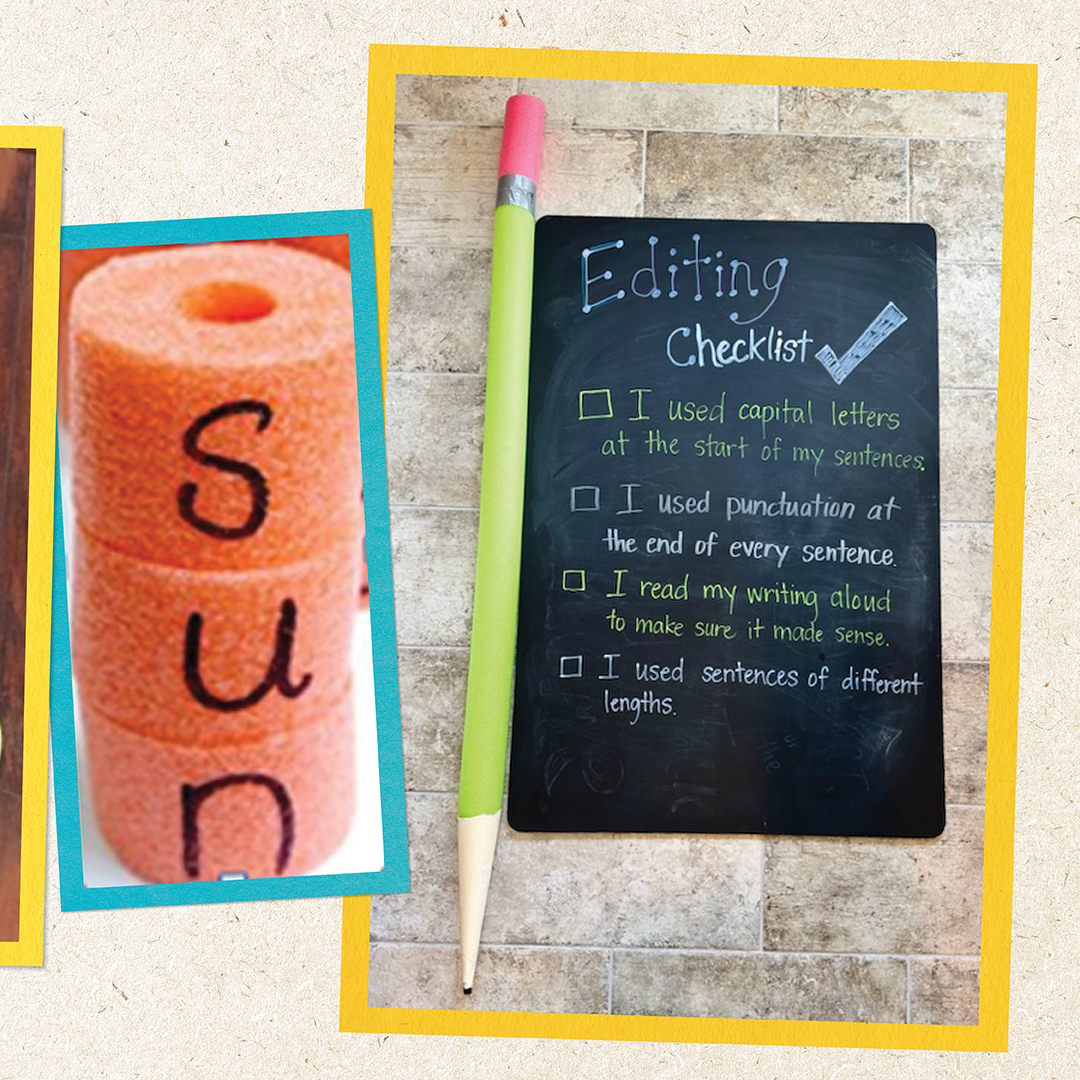 s
u
n
Editing
Checklist
I used capital letters
at the start of my sentences.
I used punctuation at
the end of every sentence.
I read my writing aloud
to make sure it made sense.
I used sentences of different
lengths.